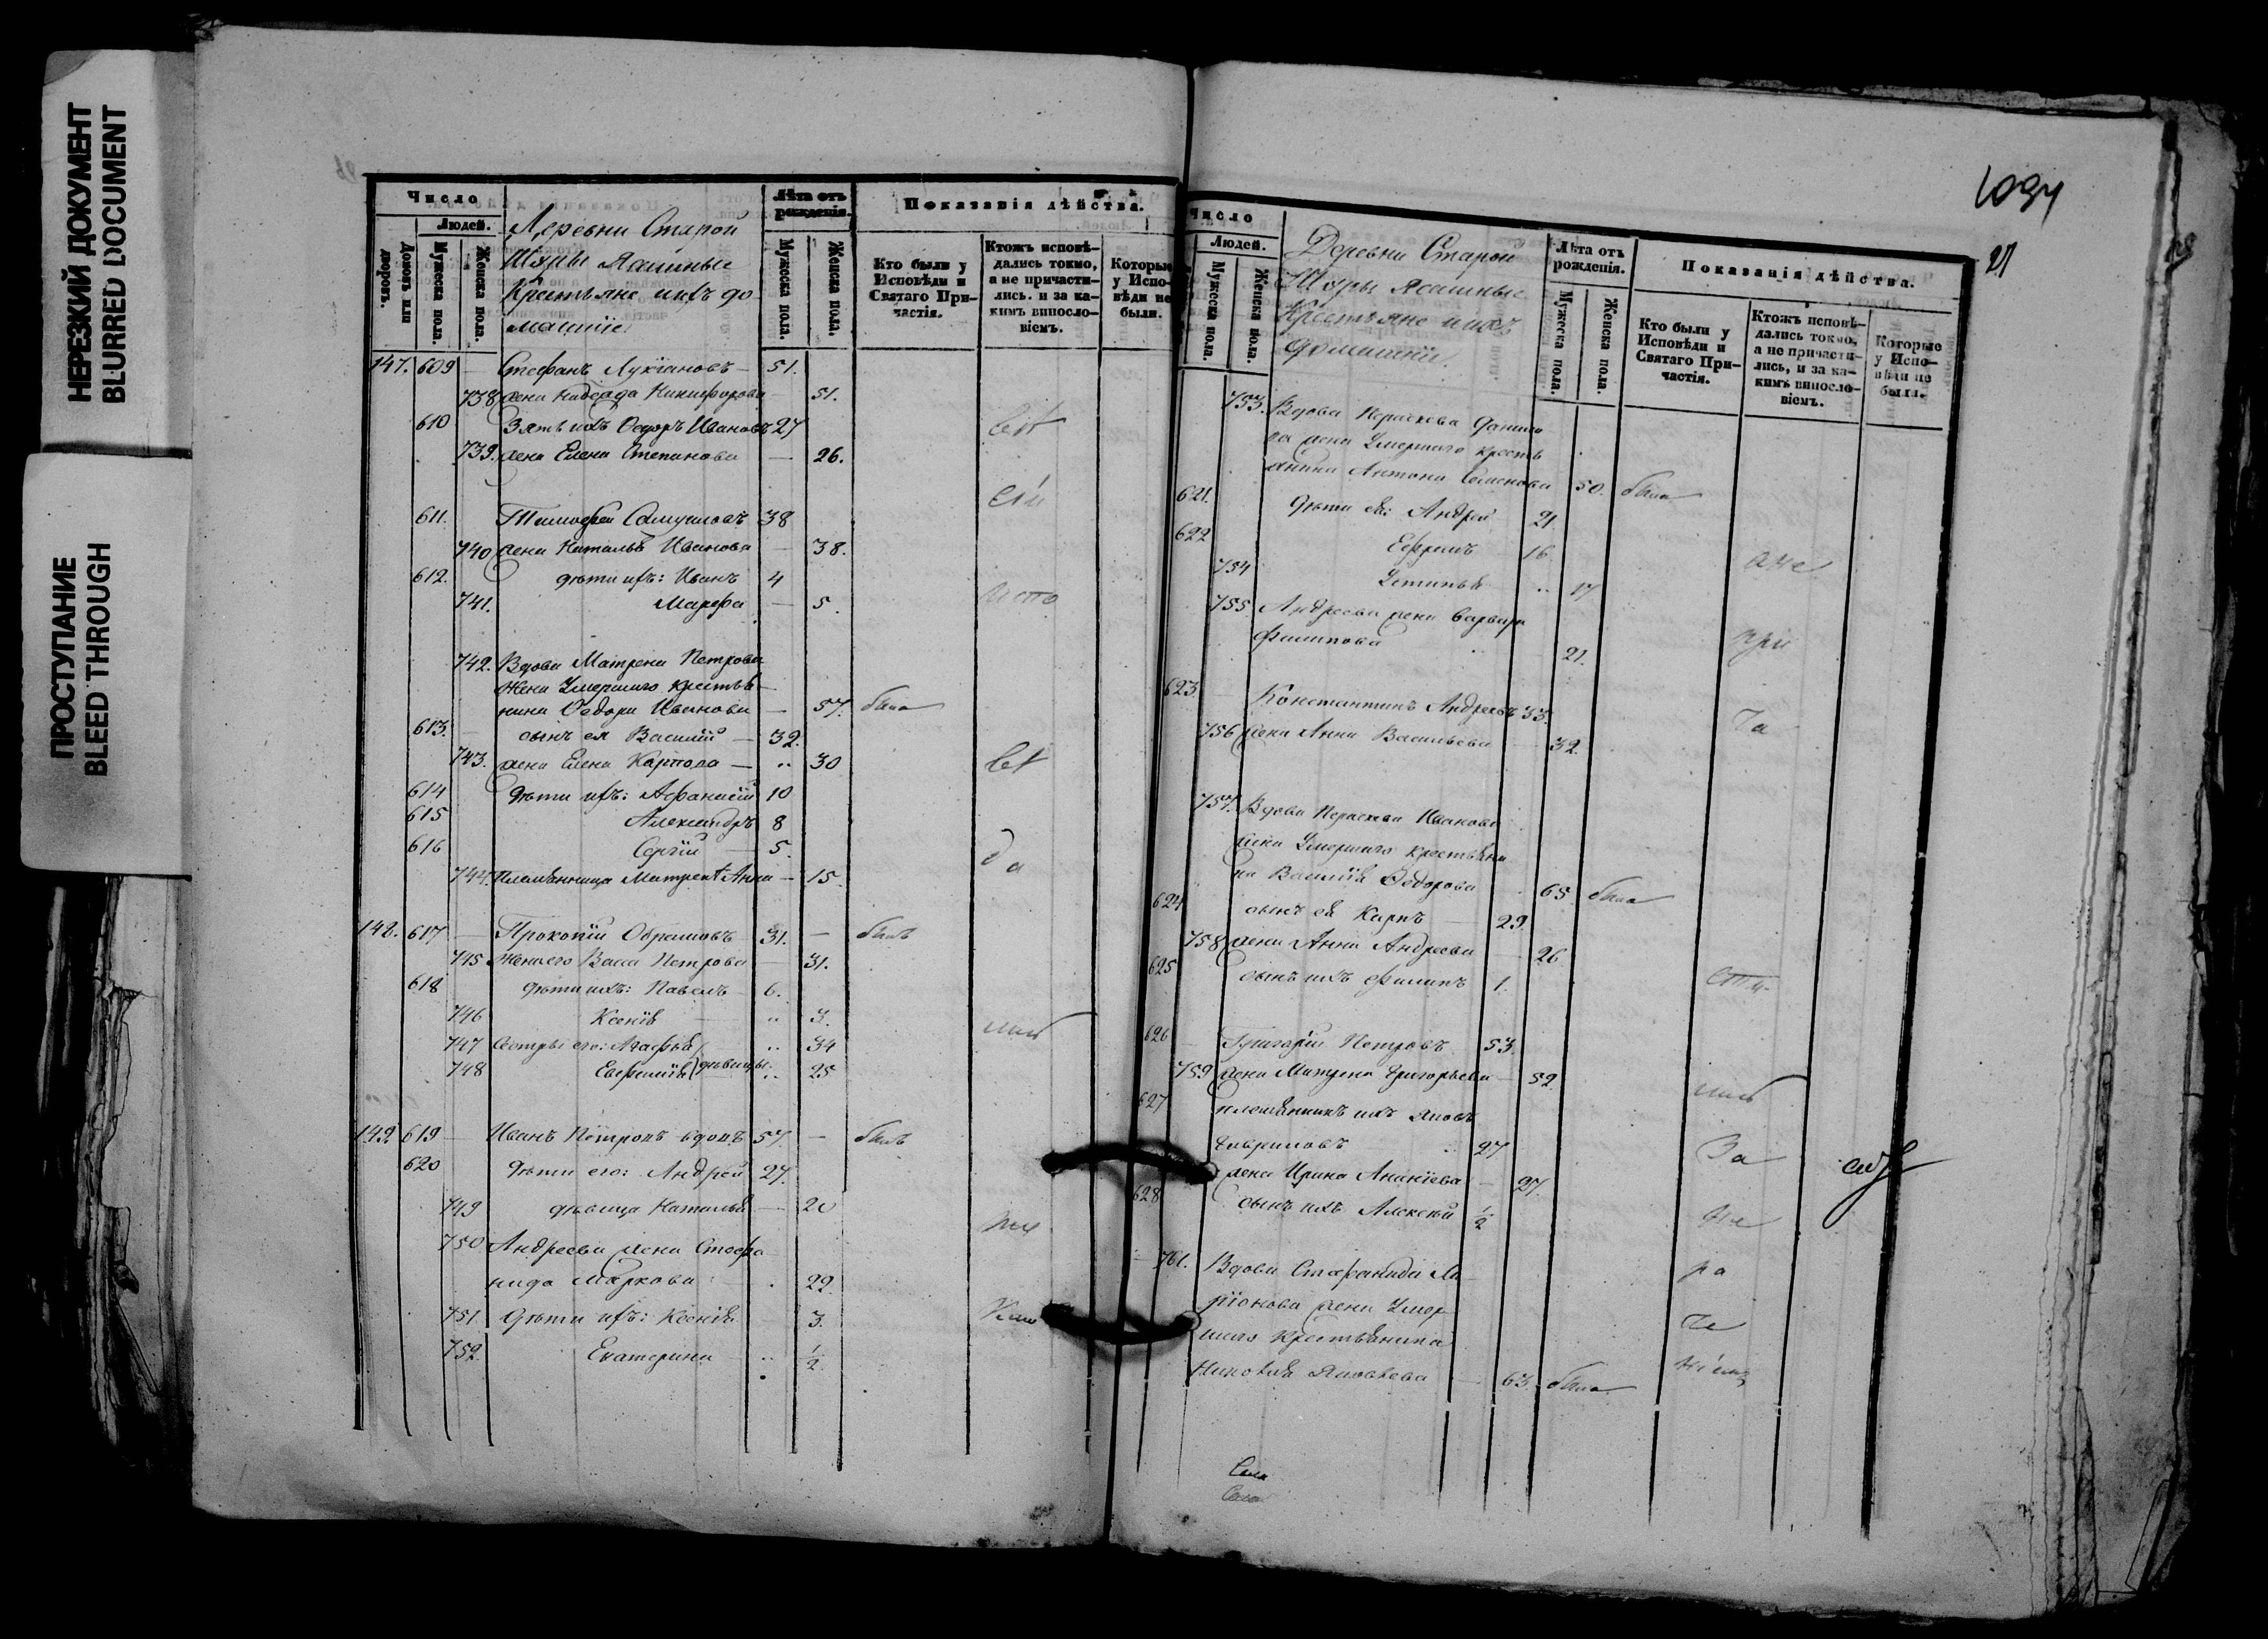 НЕРЕЗКИЙ ДОКУМЕНТ
BLURRED DOCUMENT
ПРОСТУПАНИЕ
BLEED THROUGH
Число
Людей.
Домовъ или дворовъ.
Мужеска пола.
Женска пола.
Деревни Старой
Шуры Ясашные
Крестьяне ихъ до
машніе.
Лѣта отъ рожденія.
Мужеска пола.
Женска пола.
Показанія дѣйства.
Кто были у Исповѣди и Святаго Причастія.
Ктожъ исповѣдались токмо, а не причастились. и за какимъ винословіемъ.
Которые у Исповѣди не были.
147. 609 Стефанъ Лукіановъ 51.
738 жена Надежда Никифорова 51.
610 Зять ихъ Ѳедоръ Ивановъ 27
739. жена Елена Степанова 26.
611. Тимофей Самуиловъ 38
740 жена Наталья Иванова 38.
612. дѣти ихъ: Иванъ 4
741. Марфа 5.
742. Вдова Матрена Петрова
жена Умершаго крестья
нина Ѳедора Иванова 57. была
613. сынъ ея Василій 32.
743. жена Елена Карпова 30
614 дѣти ихъ: Афанасій 10
615 Александръ 8
616 Сергій 5.
да
744. племянница Матрены Анна 15.
148. 617 Прокопій Обрамовъ 31. былъ
745 Жена его Васса Петрова 31.
618 дѣти ихъ: Павелъ 6.
746 Ксенія 3.
747 Сестры его: Агафья 34
748 Евфимія дѣвицы 25
149 619 Иванъ Петровъ вдовъ 57. былъ
620 дѣти его: Андрей 27.
749 дѣвица Наталья 20
750 Андреева жена Стефа
нида Маркова 22.
751. дѣти ихъ: Ксенія 3.
752. Екатерина 1/2
1034
27
Число
Людей.
Мужеска пола.
Женска пола.
Деревни Старой
Шуры Ясашные
Крестьяне ихъ
домашніе
Лѣта отъ рожденія.
Мужеска пола.
Женска пола.
Показанія дѣйства.
Кто были у Исповѣди и Святаго Причастія.
Ктожъ исповѣдались токмо, а не причастились, и за какимъ винословіемъ.
Которые у Исповѣди не были.
753. Вдова Параскева Данило
ва жена Умершаго кресть
янина Антона Семенова 50. была
621. дѣти ея: Андрей 21
622 Ефремъ 16
754 Устинья 17
а не
755. Андреева жена Варвара
Филипова 21.
при
623 Константинъ Андреевъ 33.
756 жена Анна Васильева 32.
ча
757. Вдова Параскева Иванова
жена Умершаго крестьяни
на Василія Ѳедорова 65 была
624 сынъ ея Карпъ 29.
758 жена Анна Андреева 26
625 сынъ ихъ Филипъ 1.
сти
626 Григорій Петровъ 53.
759 жена Матрена Григорьева 52.
627 племянникъ ихъ Яковъ
Гавриловъ 27
За
жена Ирина Ананіева 27.
628 сынъ ихъ Алексѣй 1/2
не
761. Вдова Стефанида Ла
ріонова жена Умер
шаго крестьянина
Яковлева 63. была
ра
че
ніемъ
Села
Села